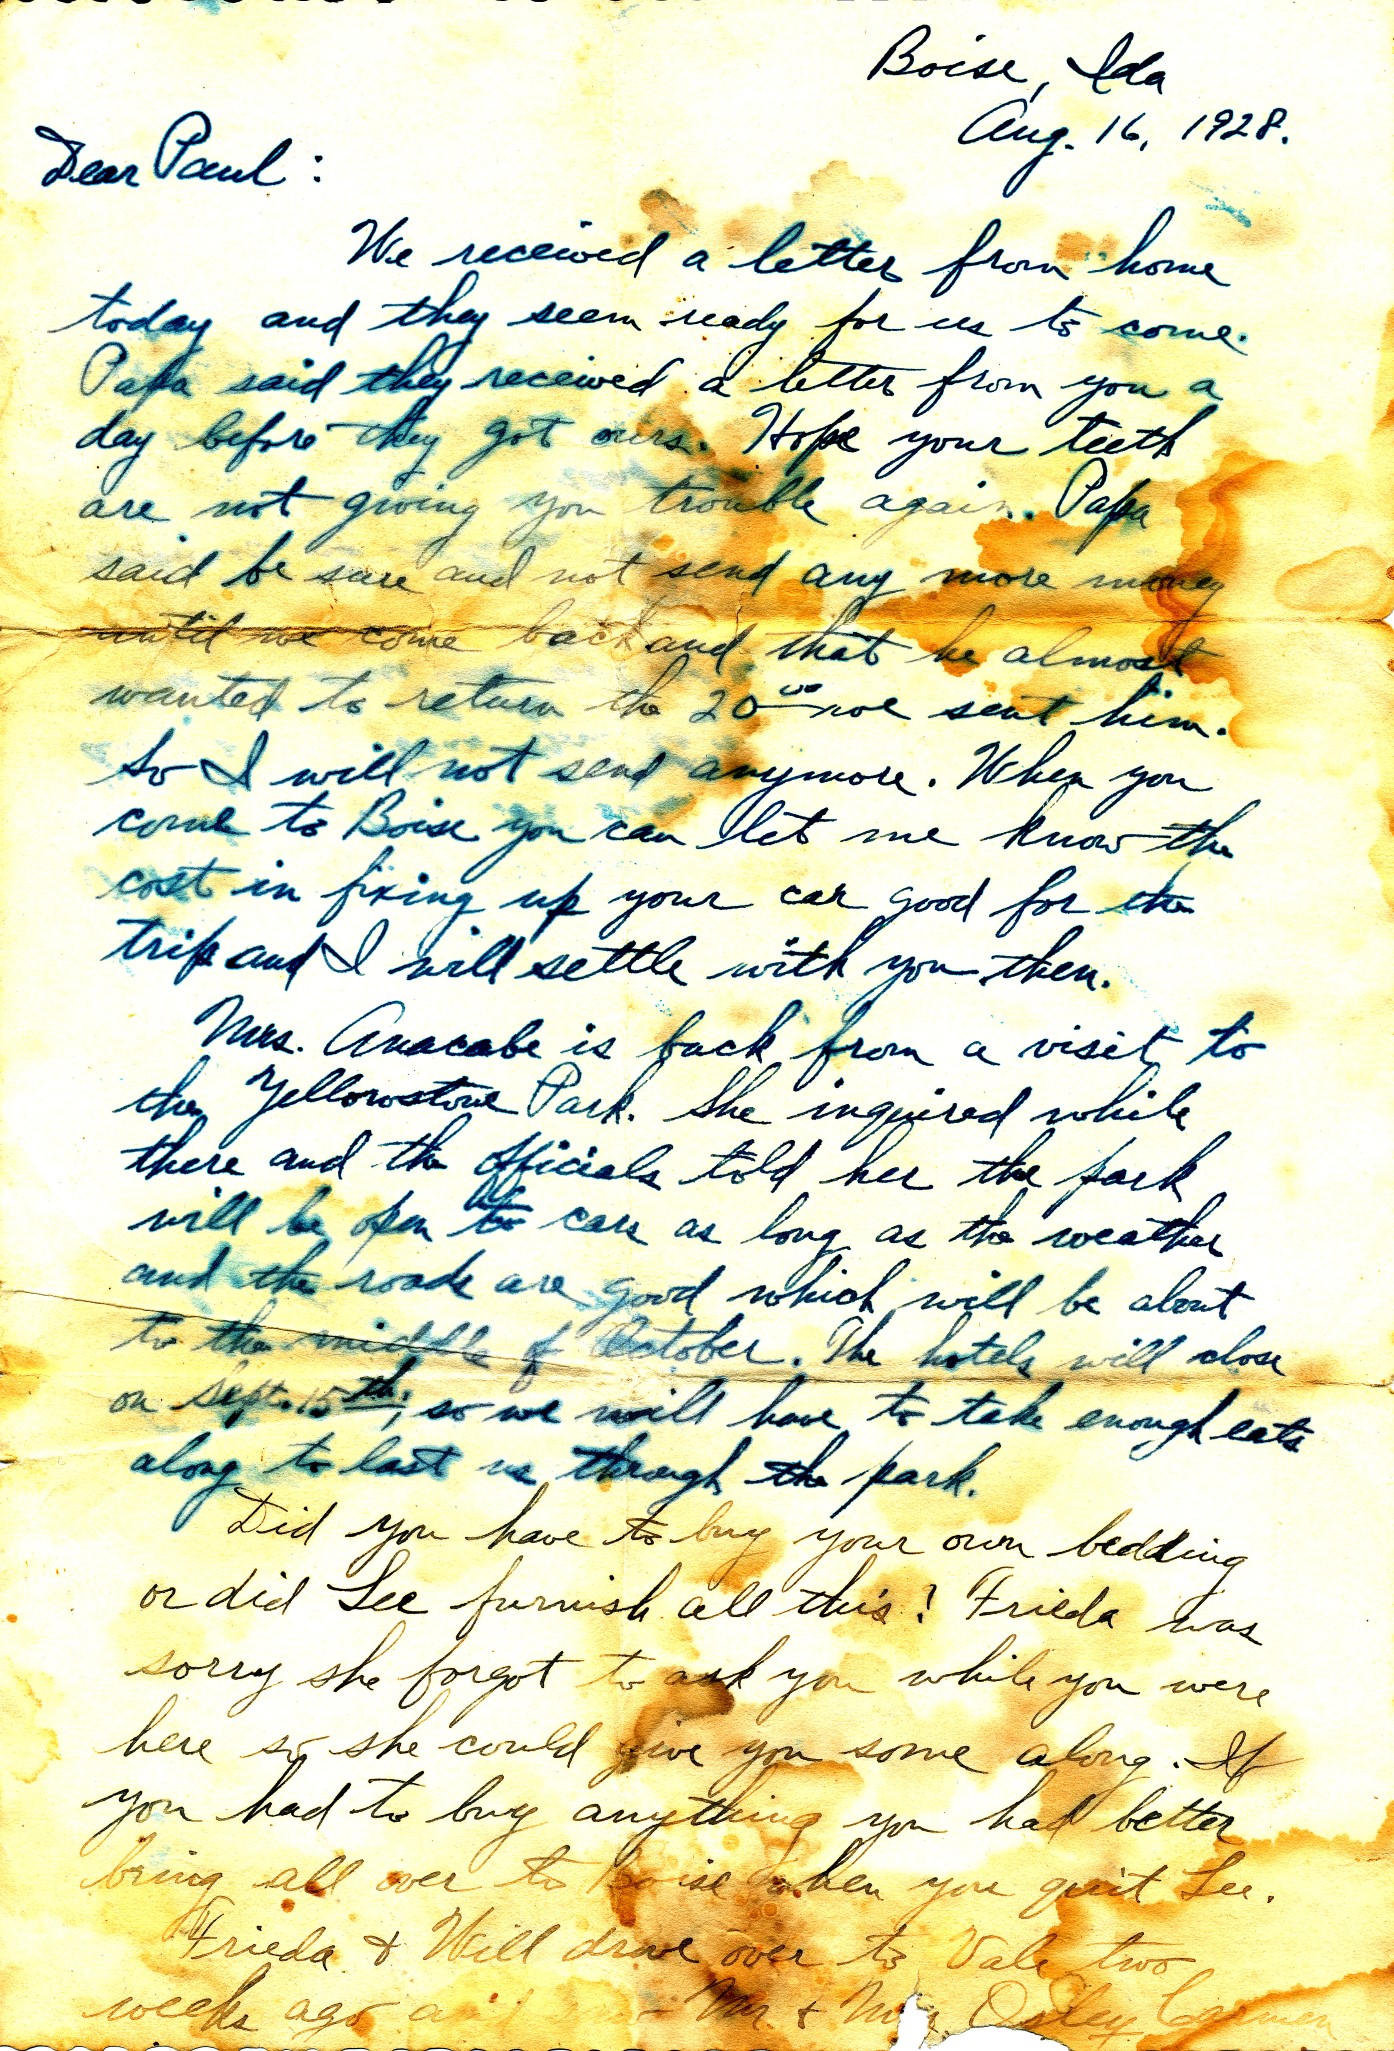 Boise, Ida
Aug. 16, 1928.
Dear Paul:
We received a letter from home
today and they seem ready for us to come.
Papa said they received a letter from you a
day before they got ours. Hope your teeth
are not giving you trouble again. Papa
said be sure and not send any more money
until we come back and that he almost
wanted to return the 20⁰⁰ we sent him.
So I will not send anymore. When you
come to Boise you can let me know the
cost in fixing up your car good for the
trip and I will settle with you then.
Mrs. Anacabe is back from a visit to
the Yellowstone Park. She inquired while
there and the officials told her the park
will be open to cars as long as the weather
and the roads are good which will be about
to the middle of October. The hotels will close
on Sept. 15th, so we will have to take enough eats
along to last us through the park.
Did you have to buy your own bedding
or did Lee furnish all this? Frieda was
sorry she forgot to ask you while you were
here so she could give you some along. If
you had to buy anything you had better
bring all over to Boise when you quit Lee.
Frieda & Will drove over to Vale two
weeks ago and Mr. & Mrs. Carmen